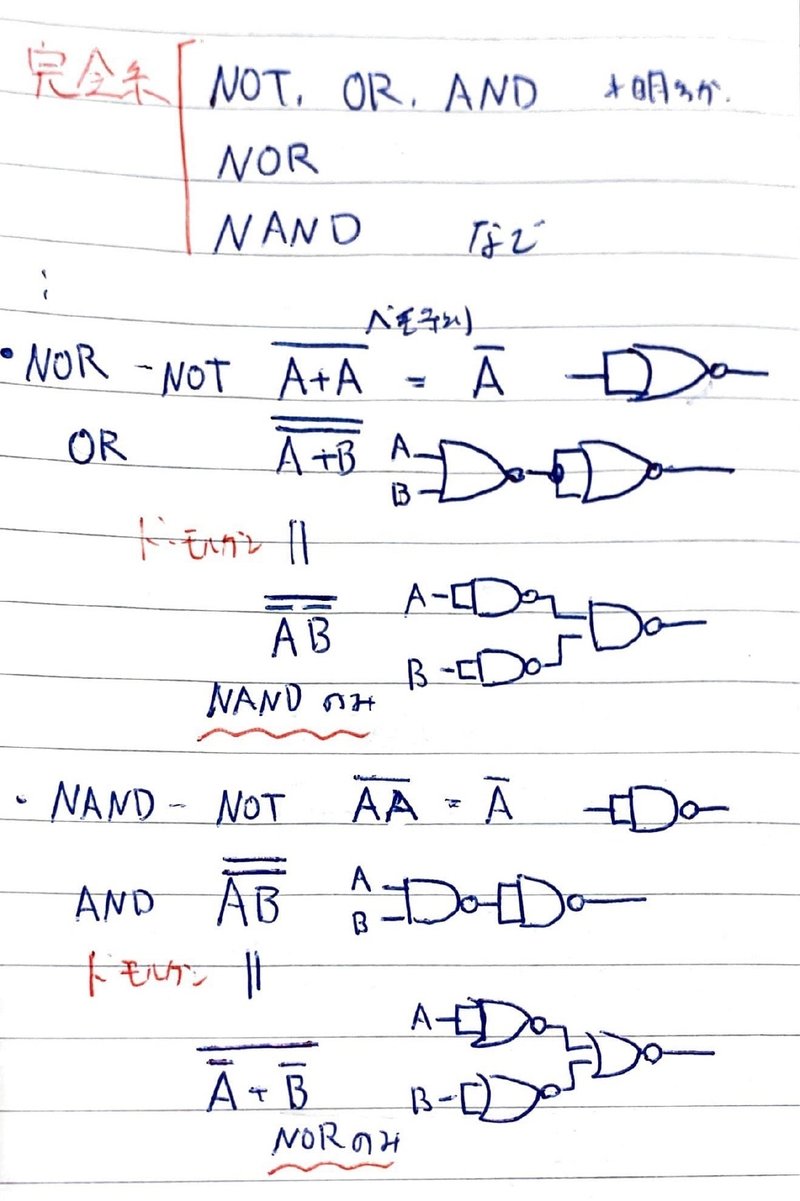 完全系 NOT, OR, AND *明らか.
NOR
NAND など
:
べき等則
・NOR - NOT \overline{A+A} = \overline{A}
OR \overline{\overline{A+B}} A
B
ド・モルガン ||
\overline{\overline{A}\,\overline{B}} A
B
NANDのみ
・NAND - NOT \overline{AA} = \overline{A}
AND \overline{\overline{AB}} A
B
ド モルガン ||
A
\overline{\overline{A}+\overline{B}} B
NORのみ